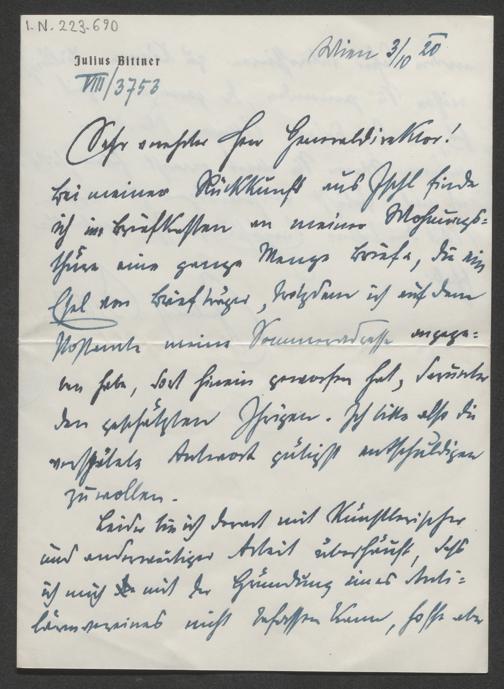 I. N. 223.690
Julius Bittner
VIII/3753
Wien 3/10 20
Sehr verehrter Herr Generaldirektor!
Bei meiner Rückkunft aus Ischl finde
ich im Briefkasten an meiner Wohnungs=
thüre eine ganze Menge Briefe, die ein
Esel von Briefträger, trotzdem ich auf dem
Postamte meine Sommeradresse angege=
ben habe, dort hinein geworfen hat, darunter
den geschätzten Ihrigen. Ich bitte also die
verspätete Antwort gütigst entschuldigen
zu wollen.
Leider bin ich derart mit künstlerischer
und anderweitiger Arbeit überhäuft, daß
ich mich mit der Gründung eines Anti=
lärmvereines nicht befassen kann, hoffe aber